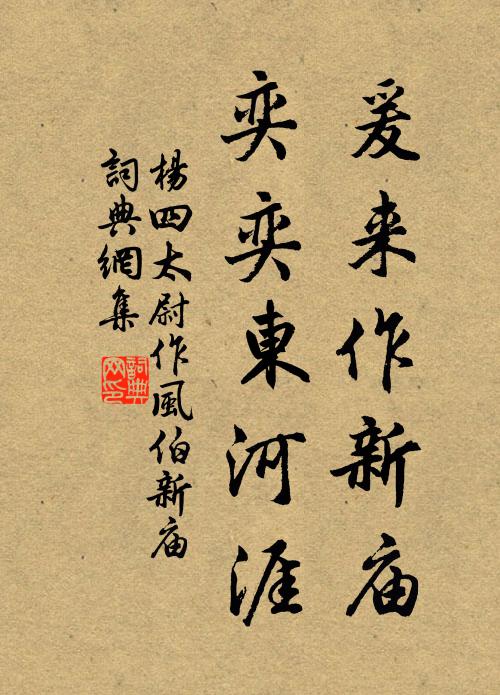 爰来作新庙
奕奕東河涯
楊四太尉作風伯新庙
詞典網集
詞典网印